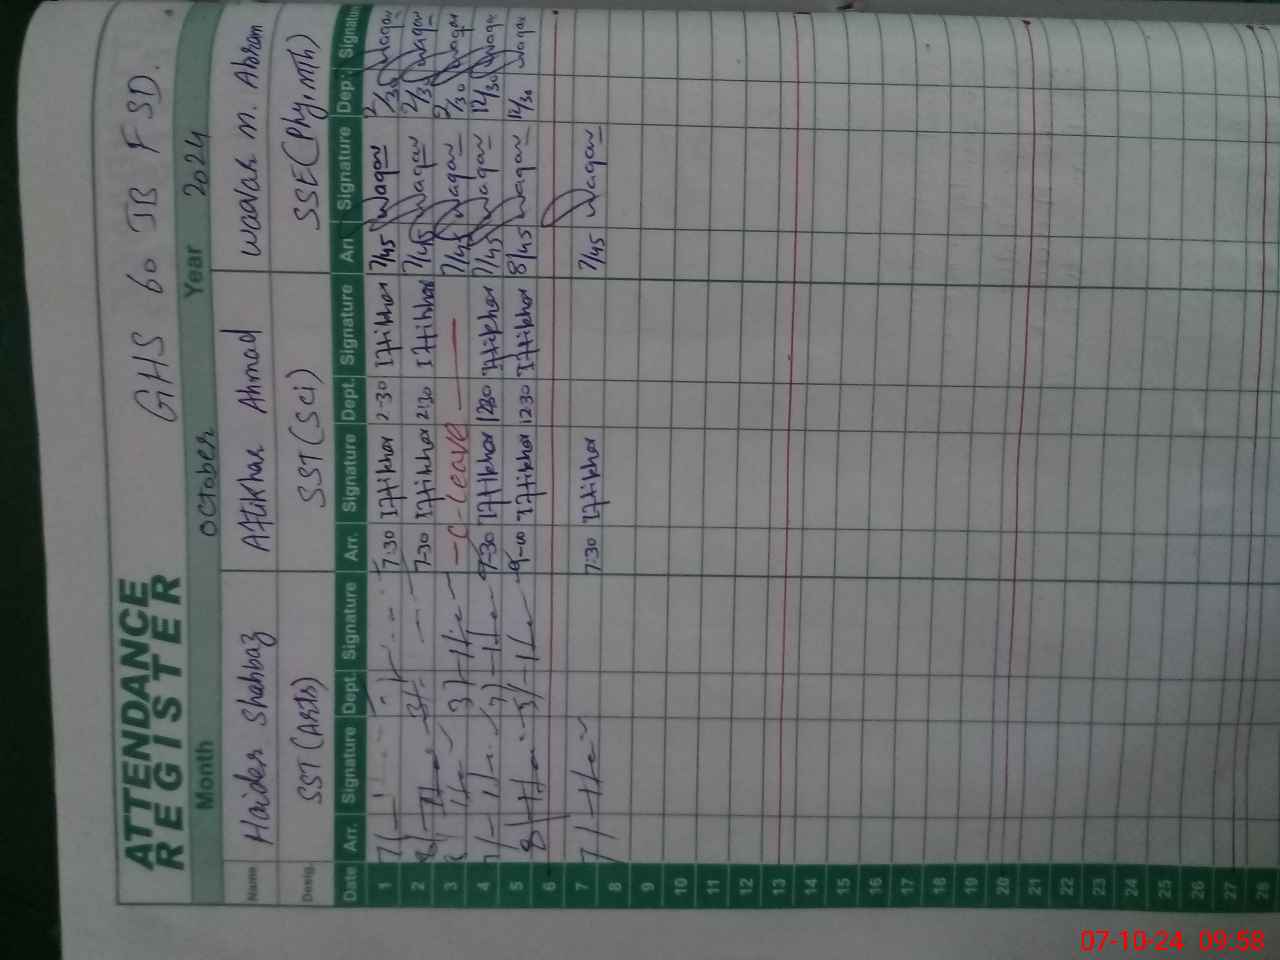 GHS 60 JB FSD.
ATTENDANCE
REGISTER
Month October Year 2024
Name Haider Shahbaz Aftikhar Ahmad Waqar M. Akram
Desig. SST (Arts) SST (Sci) SSE (Phy, Mth)
Date Arr. Signature Dept. Signature Arr. Signature Dept. Signature Arr. Signature Dept. Signature
1 7:30 Iftikhar 2-30 Iftikhar 7/45 Waqar 2/30 Waqar
2 7-30 Iftikhar 2:30 Iftikhar 7/45 Waqar 2/30 Waqar
3 C-Leave 7/45 Waqar 2/30 Waqar
4 7-30 Iftikhar 1230 Iftikhar 7/45 Waqar 12/30 Waqar
5 9-00 Iftikhar 1230 Iftikhar 8/45 Waqar 12/30 Waqar
6
7 7:30 Iftikhar 7/45 Waqar
8
9
10
11
12
13
14
15
16
17
18
19
20
21
22
23
24
25
26
27
28
07-10-24 09:58